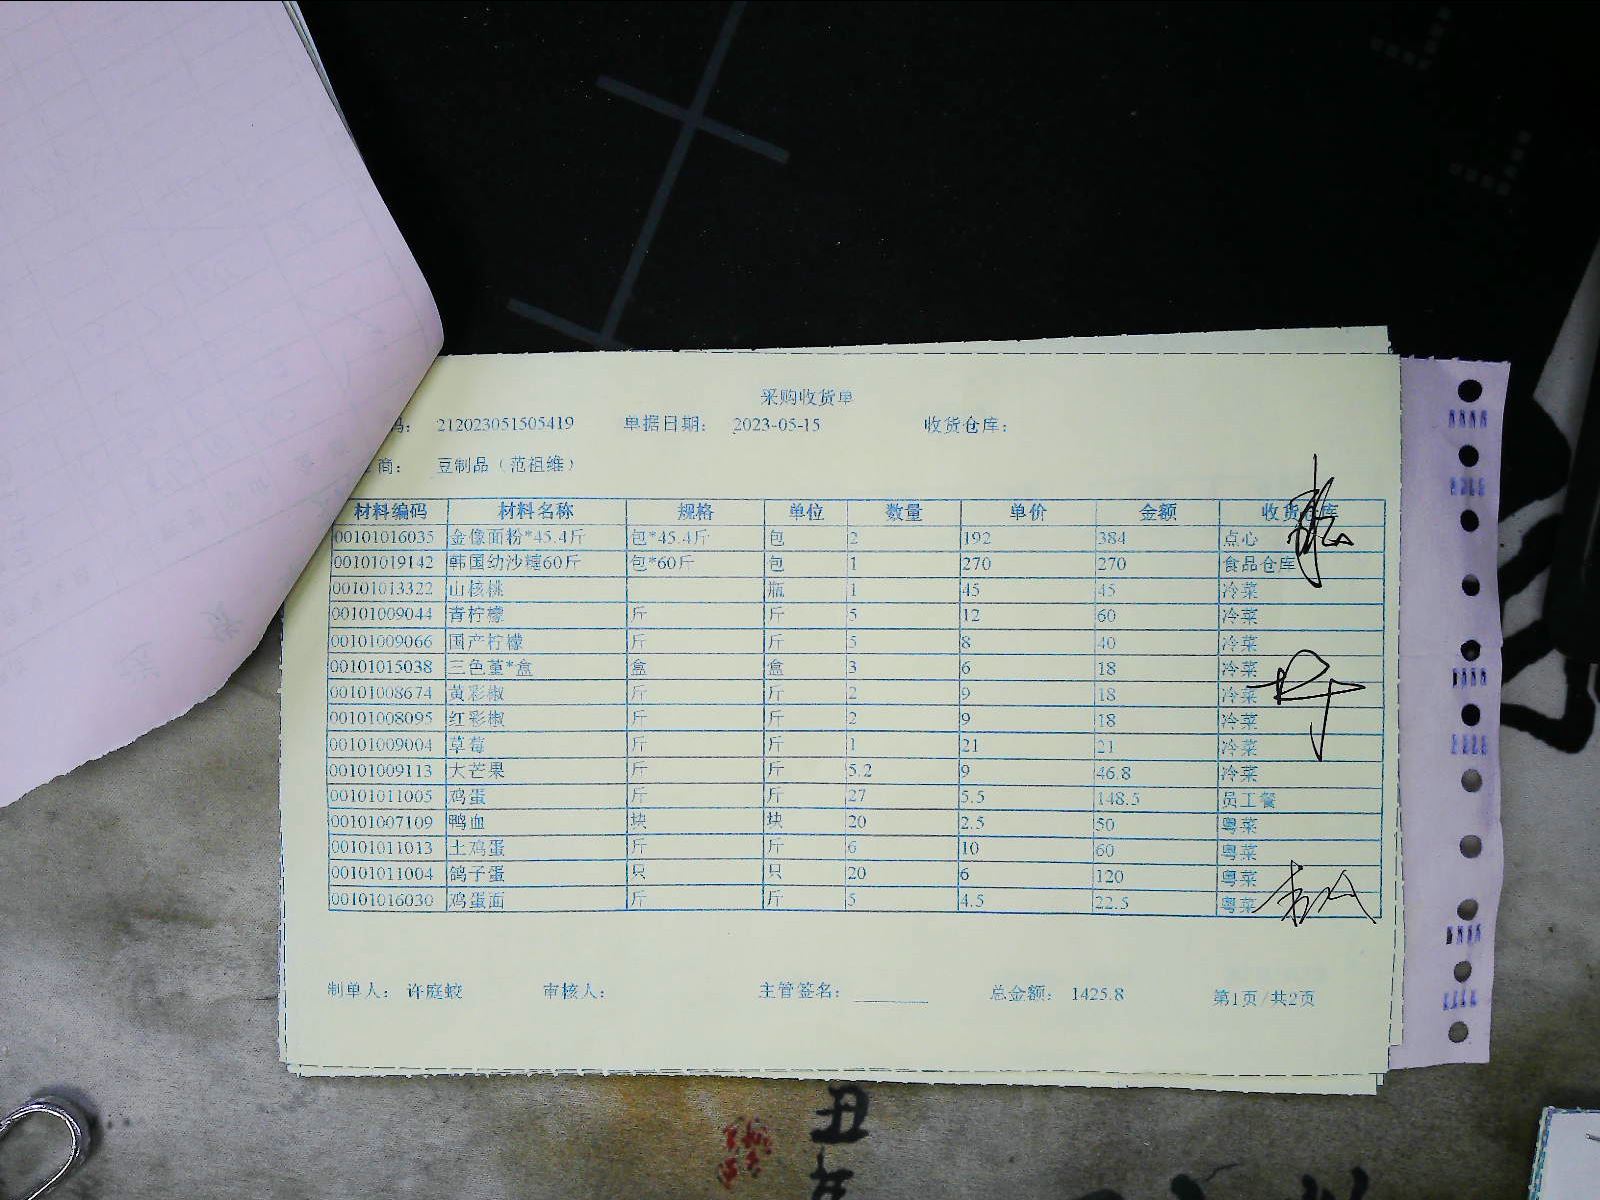 采购收货单
码： 212023051505419 单据日期： 2023-05-15 收货仓库：
商： 豆制品（范祖维）
材料编码 材料名称 规格 单位 数量 单价 金额 收货仓库
00101016035 金像面粉*45.4斤 包*45.4斤 包 2 192 384 点心
00101019142 韩国幼沙糖60斤 包*60斤 包 1 270 270 食品仓库
00101013322 山核桃 瓶 1 45 45 冷菜
00101009044 青柠檬 斤 斤 5 12 60 冷菜
00101009066 国产柠檬 斤 斤 5 8 40 冷菜
00101015038 三色堇*盒 盒 盒 3 6 18 冷菜
00101008674 黄彩椒 斤 斤 2 9 18 冷菜
00101008095 红彩椒 斤 斤 2 9 18 冷菜
00101009004 草莓 斤 斤 1 21 21 冷菜
00101009113 大芒果 斤 斤 5.2 9 46.8 冷菜
00101011005 鸡蛋 斤 斤 27 5.5 148.5 员工餐
00101007109 鸭血 块 块 20 2.5 50 粤菜
00101011013 土鸡蛋 斤 斤 6 10 60 粤菜
00101011004 鸽子蛋 只 只 20 6 120 粤菜
00101016030 鸡蛋面 斤 斤 5 4.5 22.5 粤菜
制单人： 许庭蛟 审核人： 主管签名： 总金额： 1425.8 第1页/共2页
丑